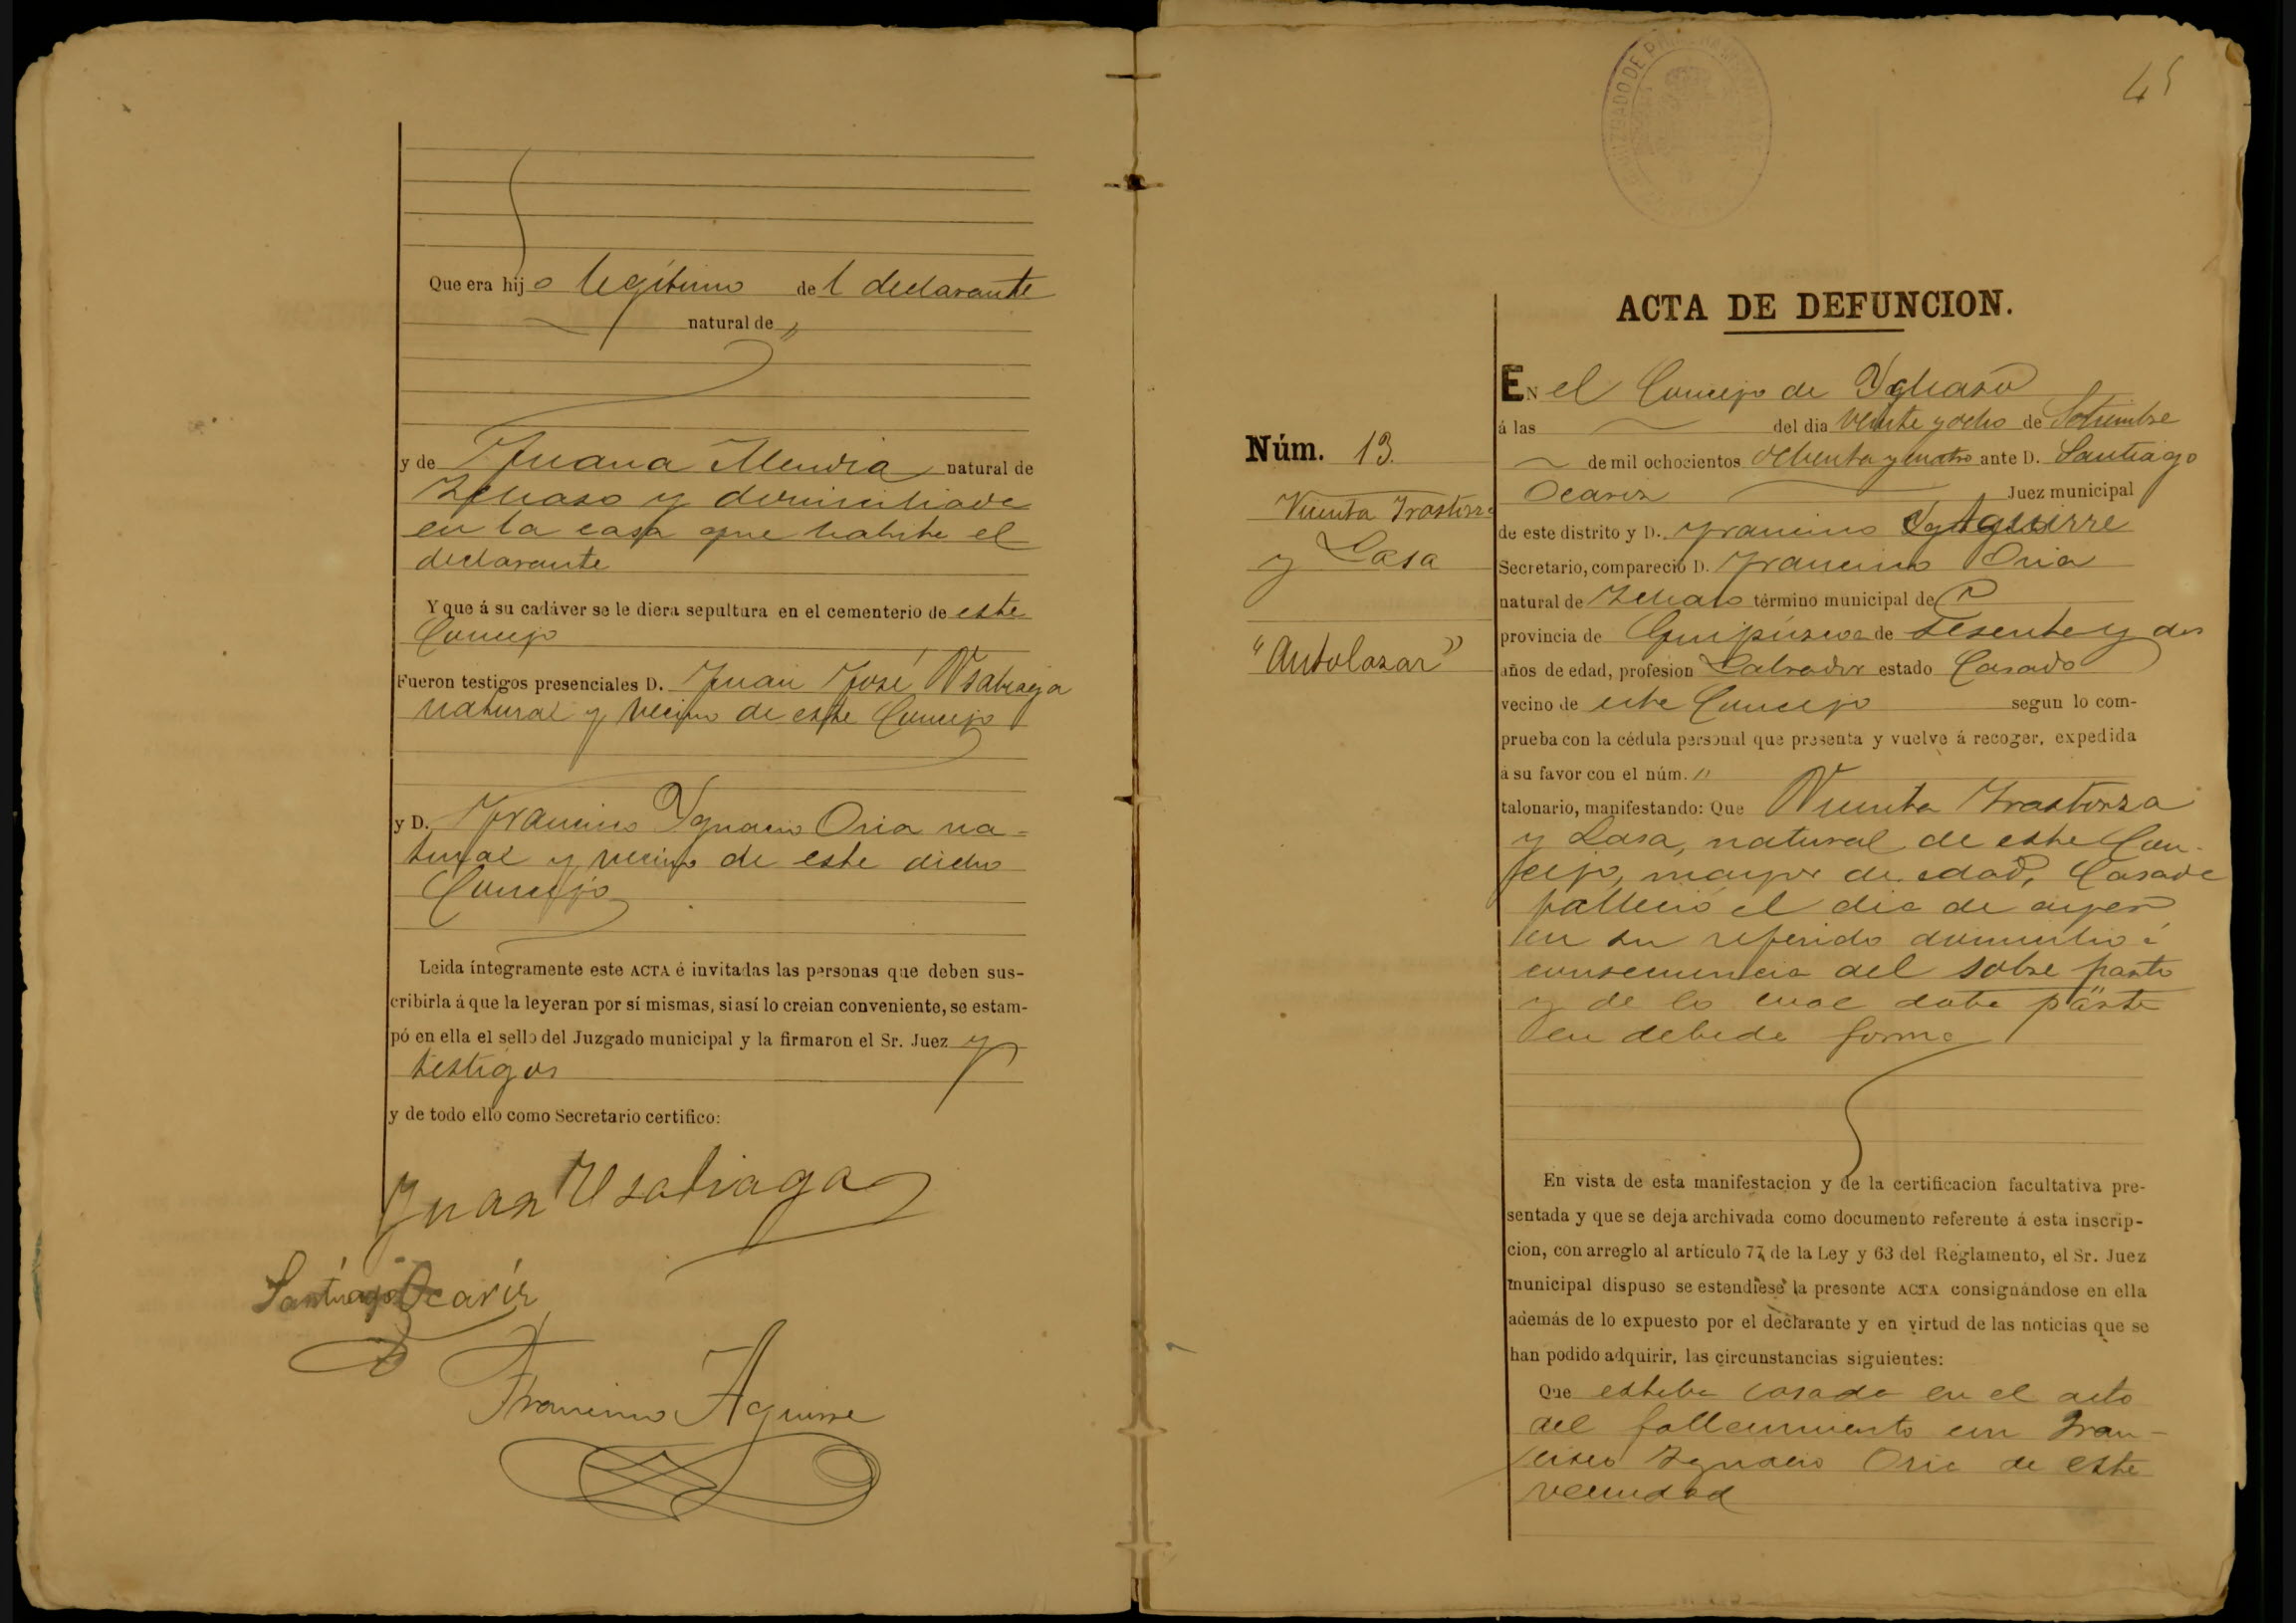 Que era hijo legítimo del declarante
natural de "
y de Juana Mendia natural de
Ichaso y domiciliada
en la casa que habita el
declarante
Y que á su cadáver se le diera sepultura en el cementerio de este
Concejo
Fueron testigos presenciales D. Juan José Usabiaga
natural y vecino de este Concejo
y D. Francisco Ygnacio Oria na=
tural y vecino de este dicho
Concejo
Leida íntegramente este ACTA é invitadas las personas que deben sus-
cribirla á que la leyeran por sí mismas, si así lo creian conveniente, se estam-
pó en ella el sello del Juzgado municipal y la firmaron el Sr. Juez y
testigos
y de todo ello como Secretario certifico:
Juan Usabiaga
Santiago Ocariz
Francisco Aguirre
45
ACTA DE DEFUNCION.
Núm. 13.
Vicenta Irastorza
y Lasa
"Antolazar"
EN el Concejo de Ychaso
á las del dia veinte y ocho de Setiembre
de mil ochocientos ochenta y cuatro ante D. Santiago
Ocariz Juez municipal
de este distrito y D. Francisco Aguirre
Secretario, compareció D. Francisco Oria
natural de Ichaso término municipal de
provincia de Guipúzcoa de sesenta y dos
años de edad, profesion Labrador estado Casado
vecino de este Concejo segun lo com-
prueba con la cédula personal que presenta y vuelve á recoger, expedida
á su favor con el núm. "
talonario, manifestando: Que Vicenta Irastorza
y Lasa, natural de este Con-
cejo, mayor de edad, Casada
falleció el dia de ayer
en su referido domicilio á
consecuencia del sobre parto
y de lo cual daba parte
en debida forma
En vista de esta manifestacion y de la certificacion facultativa pre-
sentada y que se deja archivada como documento referente á esta inscrip-
cion, con arreglo al artículo 77 de la Ley y 63 del Reglamento, el Sr. Juez
municipal dispuso se estendiese la presente ACTA consignándose en ella
además de lo expuesto por el declarante y en virtud de las noticias que se
han podido adquirir, las circunstancias siguientes:
Que estaba casada en el acto
del fallecimiento con Fran-
cisco Ignacio Oria de esta
vecindad